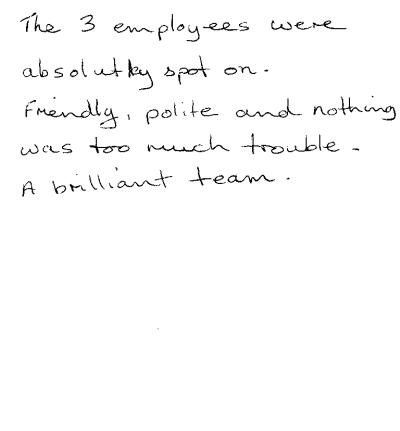 The 3 employees were
absolutky spot on.
Friendly, polite and nothing
was too much trouble.
A brilliant team.